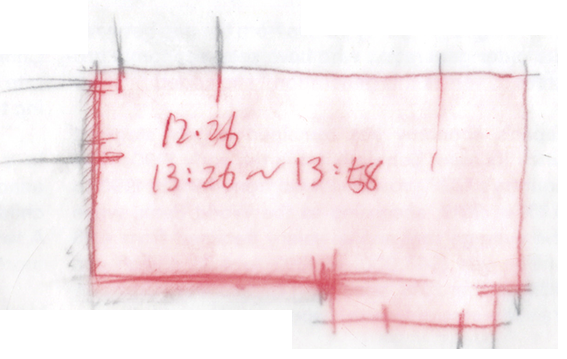 12.26
13:26~13:58